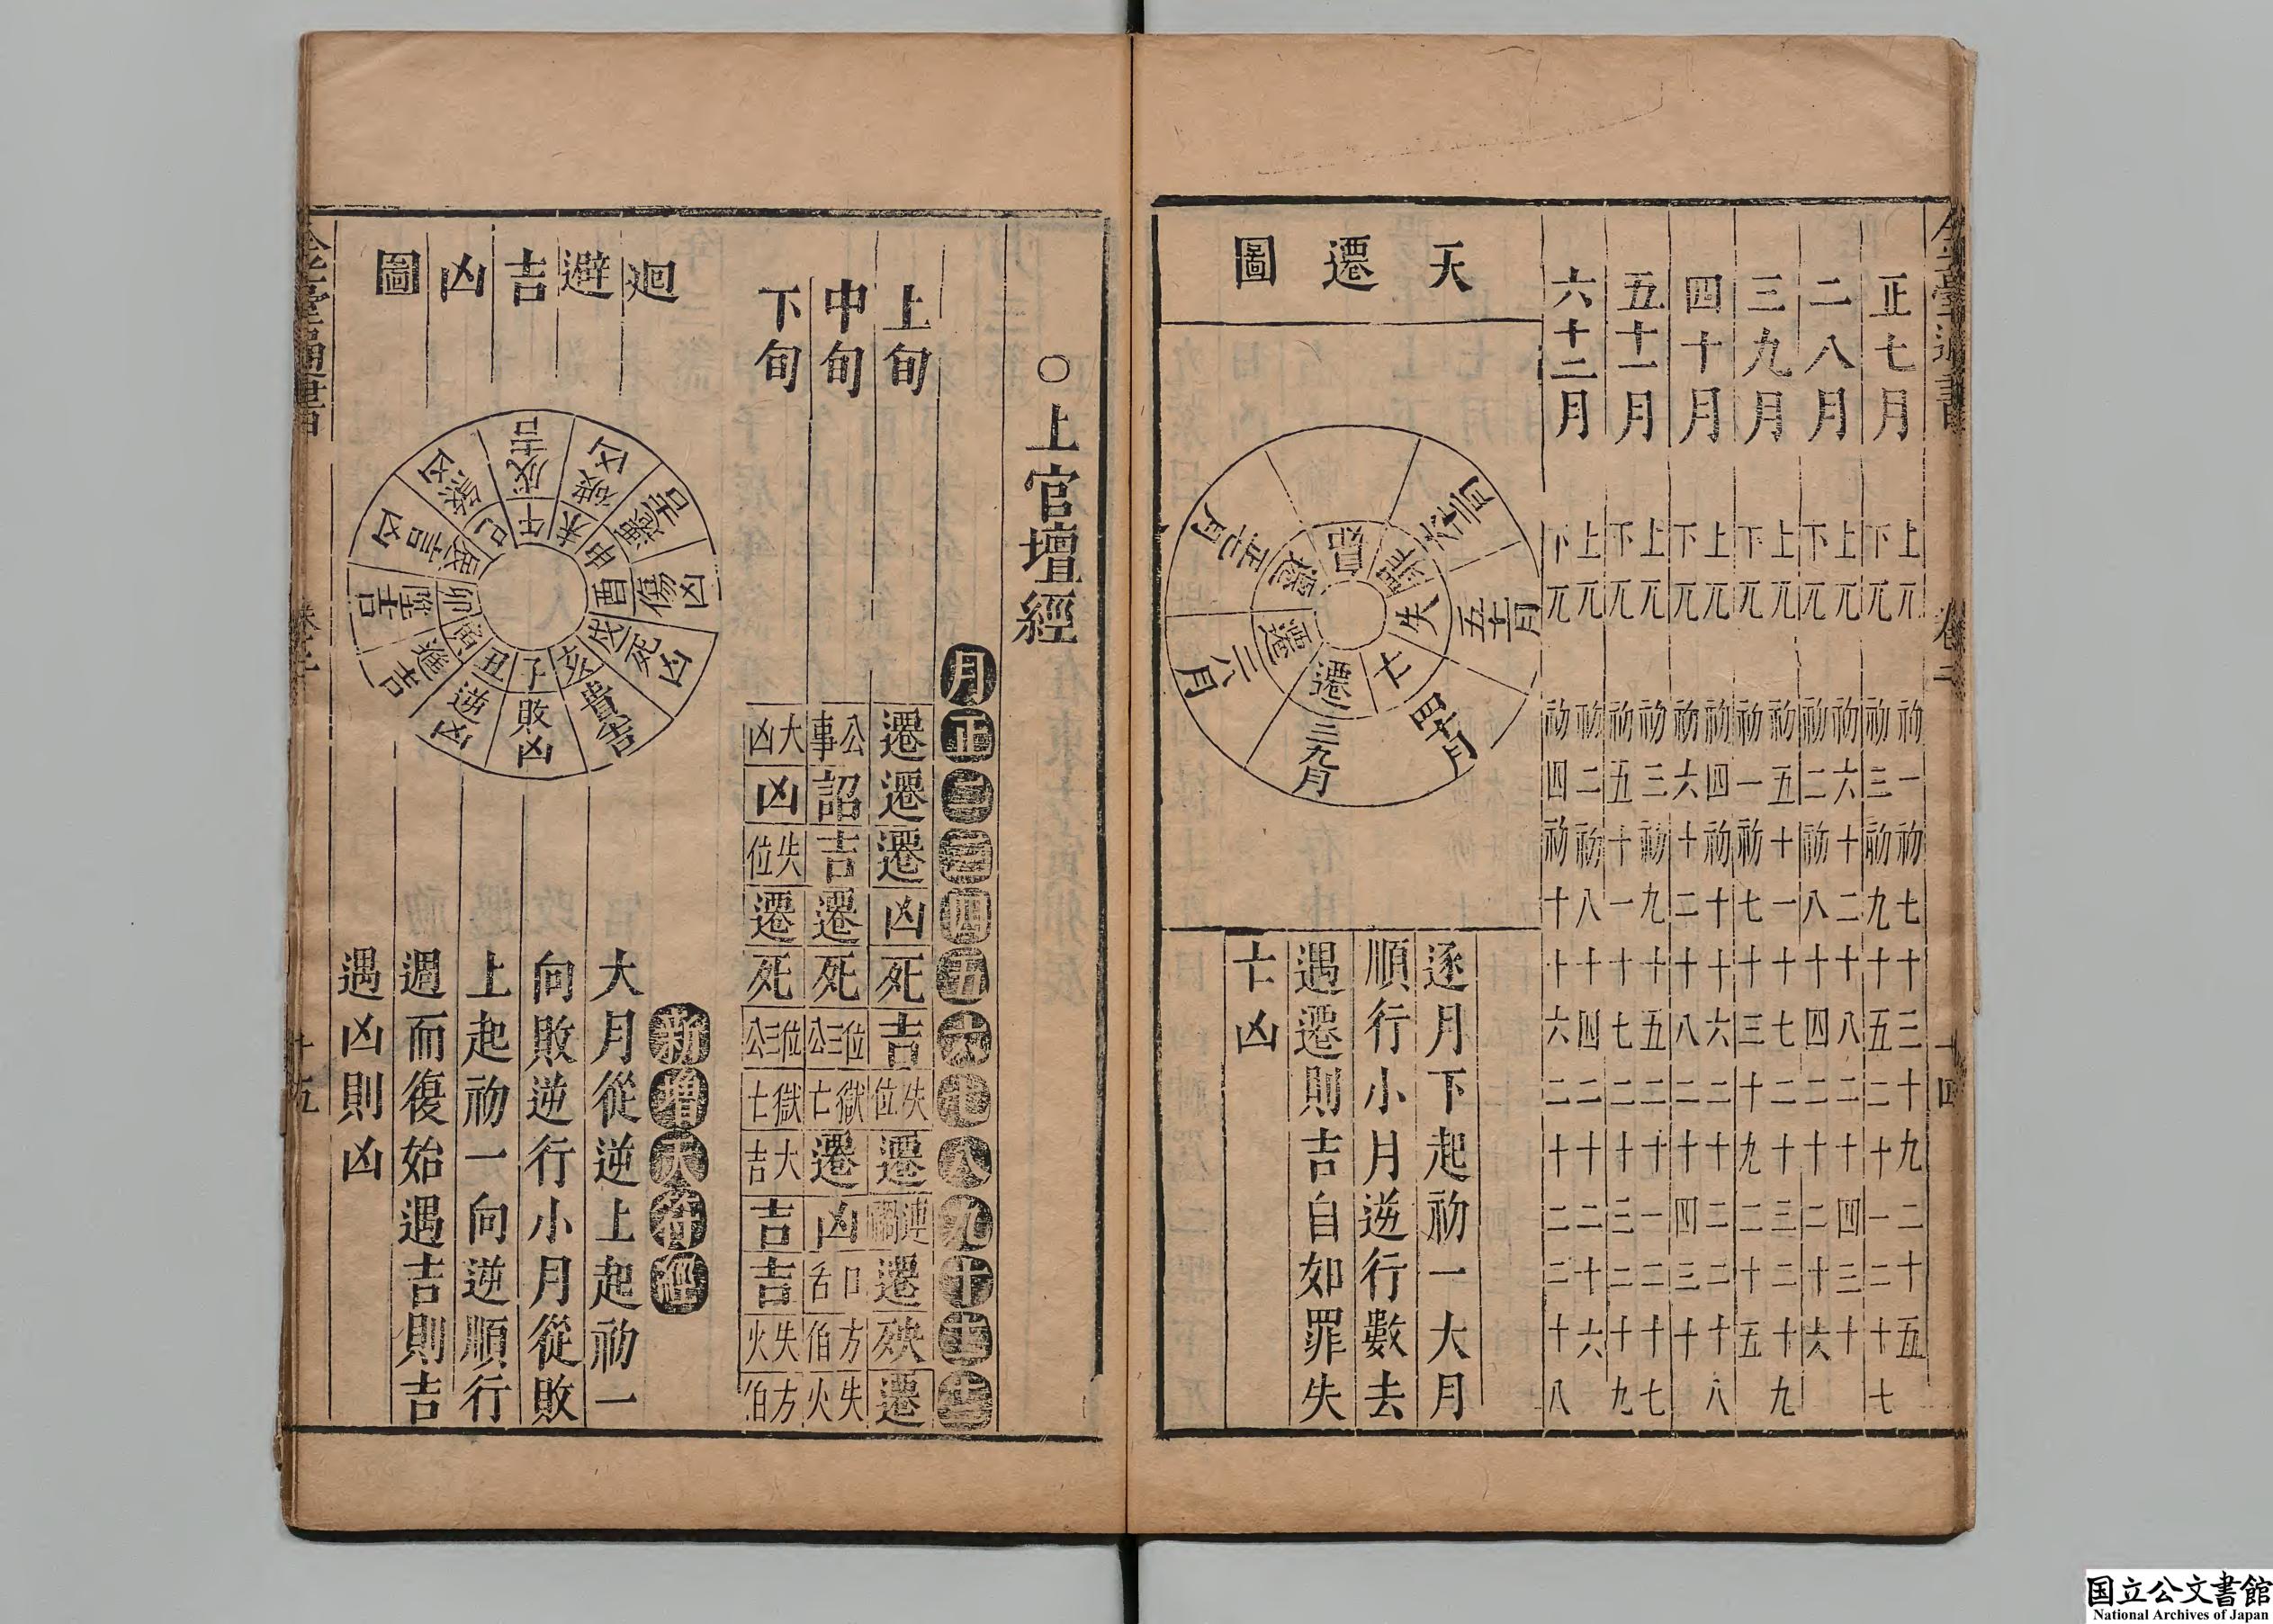 正七月 上元 初一 初七 十三 十九 二十五
下元 初三 初九 十五 二十一 二十七
二八月 上元 初六 十二 十八 二十四 三十
下元 初二 初八 十四 二十 二十六
三九月 上元 初五 十一 十七 二十三 二十九
下元 初一 初七 十三 十九 二十五
四十月 上元 初四 初十 十六 二十二 二十八
下元 初六 十二 十八 二十四 三十
五十一月 上元 初三 初九 十五 二十一 二十七
下元 初五 十一 十七 二十三 二十九
六十二月 上元 初二 初八 十四 二十 二十六
下元 初四 初十 十六 二十二 二十八
天遷圖
遷 三九月
遷 二八月
遷 正七月
罪 六十二月
失 五十一月
亡 四十月
逐月下起初一大月
順行小月逆行數去
遇遷則吉自如罪失
亡凶
○上官壇經
月 正 二 三 四 五 六 七 八 九 十 十一 十二
上旬 遷 遷 遷 凶 死 吉 失位 遷 連禍 遷 殃 遷
中旬 公事 詔 吉 遷 死 位三公 獄亡 遷 凶 口舌 方伯 失火
下旬 大凶 凶 失位 遷 死 位三公 獄亡 大吉 吉 吉 失火 方伯
新增天符經
迴避吉凶圖
午 成吉
未 破凶
申 遷吉
酉 傷凶
戌 死凶
亥 貴吉
子 敗凶
丑 逆凶
寅 遷吉
卯 吉
辰 凶
巳 凶
大月從逆上起初一
向敗逆行小月從敗
上起初一向逆順行
週而復始遇吉則吉
遇凶則凶
国立公文書館
National Archives of Japan